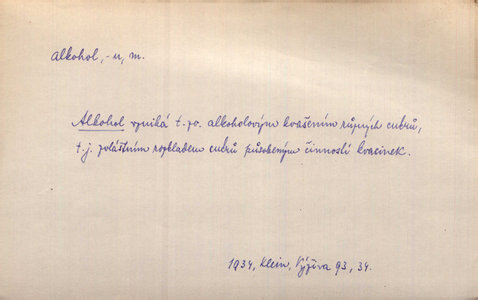 alkohol, -u, m.
Alkohol vzniká t. zv. alkoholovým kvašením různých cukrů,
t. j. zvláštním rozkladem cukrů působeným činností kvasinek.
1934, Klein, Výživa 93, 34.